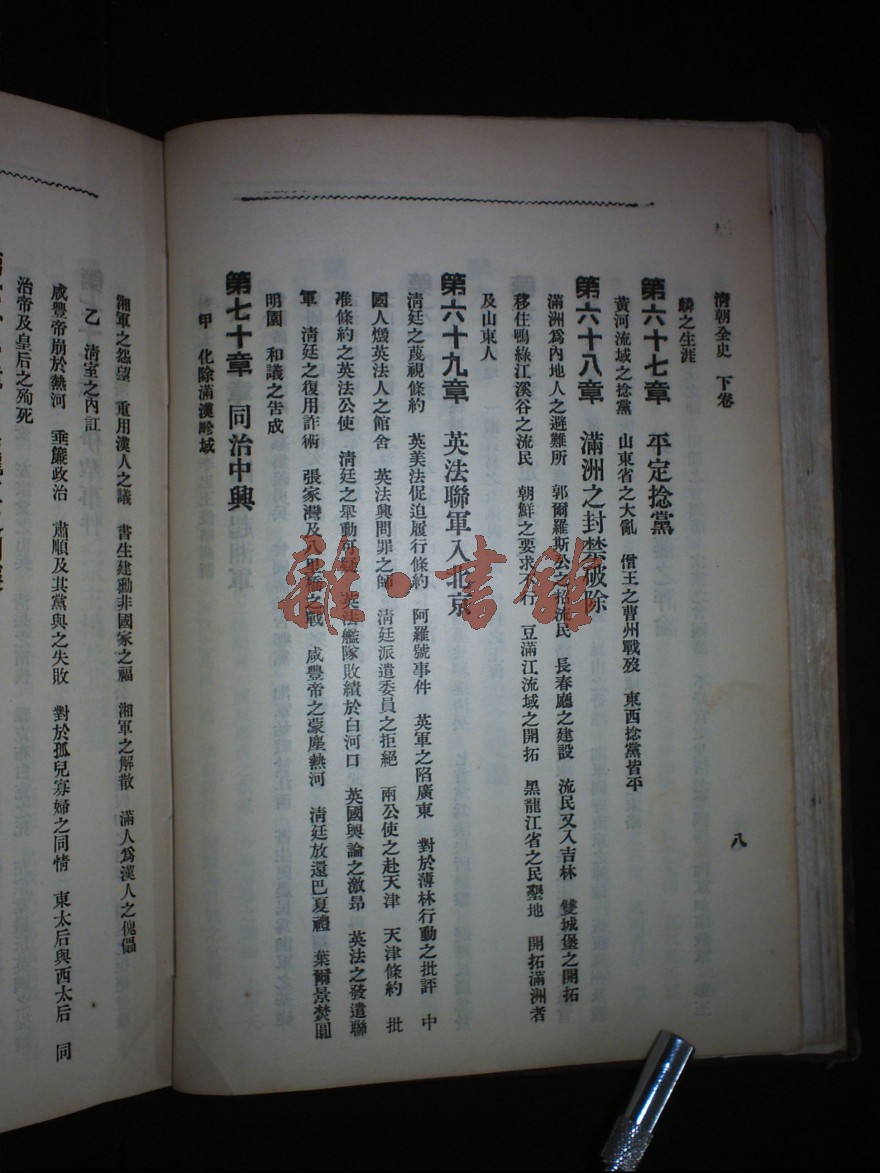 清朝全史 下卷
八
麟之生涯
第六十七章 平定捻黨
黃河流域之捻黨 山東省之大亂 僧王之曹州戰歿 東西捻黨皆平
第六十八章 滿洲之封禁破除
滿洲爲內地人之避難所 郭爾羅斯公之招流民 長春廳之建設 流民又入吉林 雙城堡之開拓
移住鴨綠江溪谷之流民 朝鮮之要求不行 豆滿江流域之開拓 黑龍江省之民墾地 開拓滿洲者
及山東人
第六十九章 英法聯軍入北京
淸廷之蔑視條約 英美法促迫履行條約 阿羅號事件 英軍之陷廣東 對於薄林行動之批評 中
國人燬英法人之館舍 英法興問罪之師 淸廷派遣委員之拒絕 兩公使之赴天津 天津條約 批
准條約之英法公使 淸廷之舉動可疑 英法艦隊敗績於白河口 英國輿論之激昂 英法之發遣聯
軍 淸廷之復用詐術 張家灣及八里橋之戰 咸豐帝之蒙塵熱河 淸廷放還巴夏禮 葉爾景焚圓
明園 和議之告成
第七十章 同治中興
甲 化除滿漢畛域
湘軍之怨望 重用漢人之議 書生建勳非國家之福 湘軍之解散 滿人爲漢人之傀儡
乙 淸室之內訌
咸豐帝崩於熱河 垂簾政治 肅順及其黨與之失敗 對於孤兒寡婦之同情 東太后與西太后 同
治帝及皇后之殉死
雜·書館